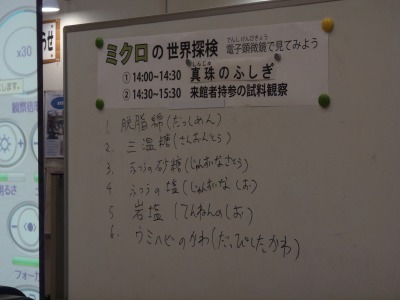 x30
らせ
ミクロの世界探検 電子顕微鏡で見てみよう
でんしけんびきょう
① 14:00~14:30 真珠のふしぎ
しんじゅ
② 14:30~15:30 来館者持参の試料観察
1. 脱脂綿(だっしめん)
2. 三温糖(さんおんとう)
3. ふつうの砂糖(じゅんすいなさとう)
4. ふつうの塩(じゅんすいな しお)
5 岩塩(てんねんのしお)
6. ウミヘビのかわ(だっぴしたかわ)
観察倍率
明るさ
フォーカ